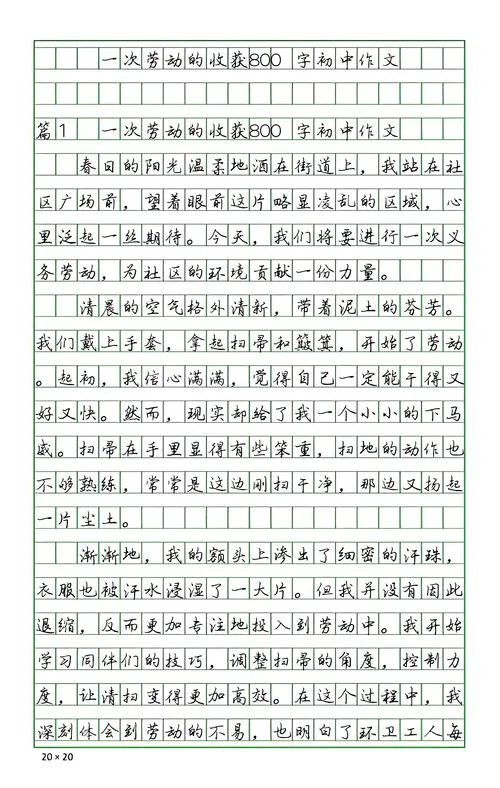 一次劳动的收获800 字初中作文
篇1 一次劳动的收获800 字初中作文
春日的阳光温柔地洒在街道上，我站在社
区广场前，望着眼前这片略显凌乱的区域，心
里泛起一丝期待。今天，我们将要进行一次义
务劳动，为社区的环境贡献一份力量。
清晨的空气格外清新，带着泥土的芬芳。
我们戴上手套，拿起扫帚和簸箕，开始了劳动
。起初，我信心满满，觉得自己一定能干得又
好又快。然而，现实却给了我一个小小的下马
威。扫帚在手里显得有些笨重，扫地的动作也
不够熟练，常常是这边刚扫干净，那边又扬起
一片尘土。
渐渐地，我的额头上渗出了细密的汗珠，
衣服也被汗水浸湿了一大片。但我并没有因此
退缩，反而更加专注地投入到劳动中。我开始
学习同伴们的技巧，调整扫帚的角度，控制力
度，让清扫变得更加高效。在这个过程中，我
深刻体会到劳动的不易，也明白了环卫工人每
20×20